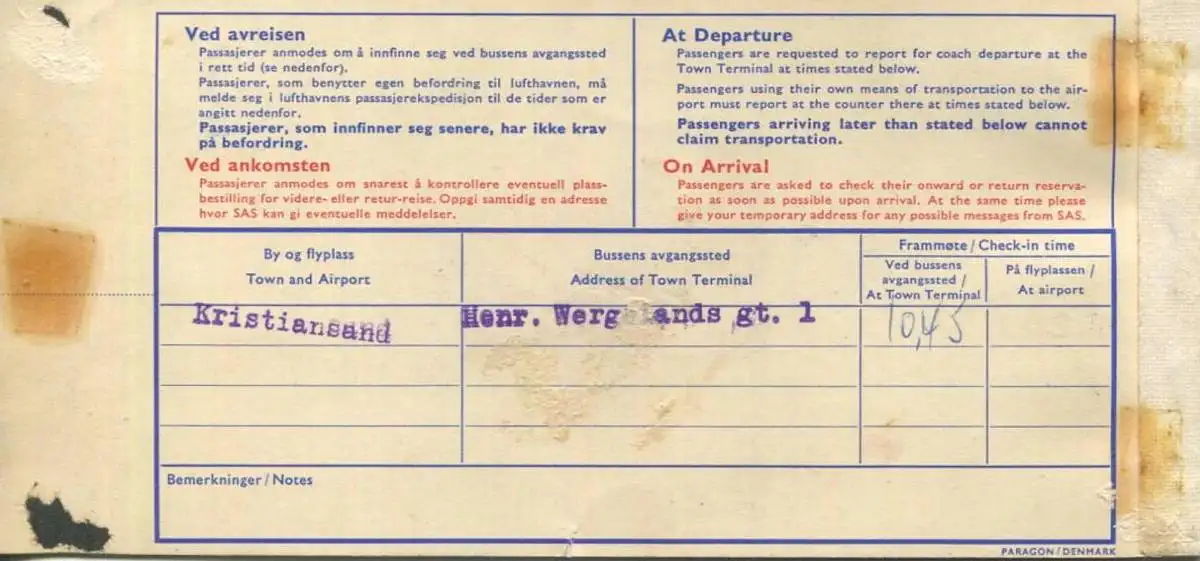 Ved avreisen
Passasjerer anmodes om å innfinne seg ved bussens avgangssted
i rett tid (se nedenfor).
Passasjerer, som benytter egen befordring til lufthavnen, må
melde seg i lufthavnens passasjerekspedisjon til de tider som er
angitt nedenfor.
Passasjerer, som innfinner seg senere, har ikke krav
på befordring.
Ved ankomsten
Passasjerer anmodes om snarest å kontrollere eventuell plass-
bestilling for videre- eller retur-reise. Oppgi samtidig en adresse
hvor SAS kan gi eventuelle meddelelser.
At Departure
Passengers are requested to report for coach departure at the
Town Terminal at times stated below.
Passengers using their own means of transportation to the air-
port must report at the counter there at times stated below.
Passengers arriving later than stated below cannot
claim transportation.
On Arrival
Passengers are asked to check their onward or return reserva-
tion as soon as possible upon arrival. At the same time please
give your temporary address for any possible messages from SAS.
By og flyplass
Town and Airport
Bussens avgangssted
Address of Town Terminal
Frammøte / Check-in time
Ved bussens
avgangssted /
At Town Terminal
På flyplassen /
At airport
Kristiansand
Henr. gt. 1
10,45
Bemerkninger / Notes
PARAGON / DENMARK